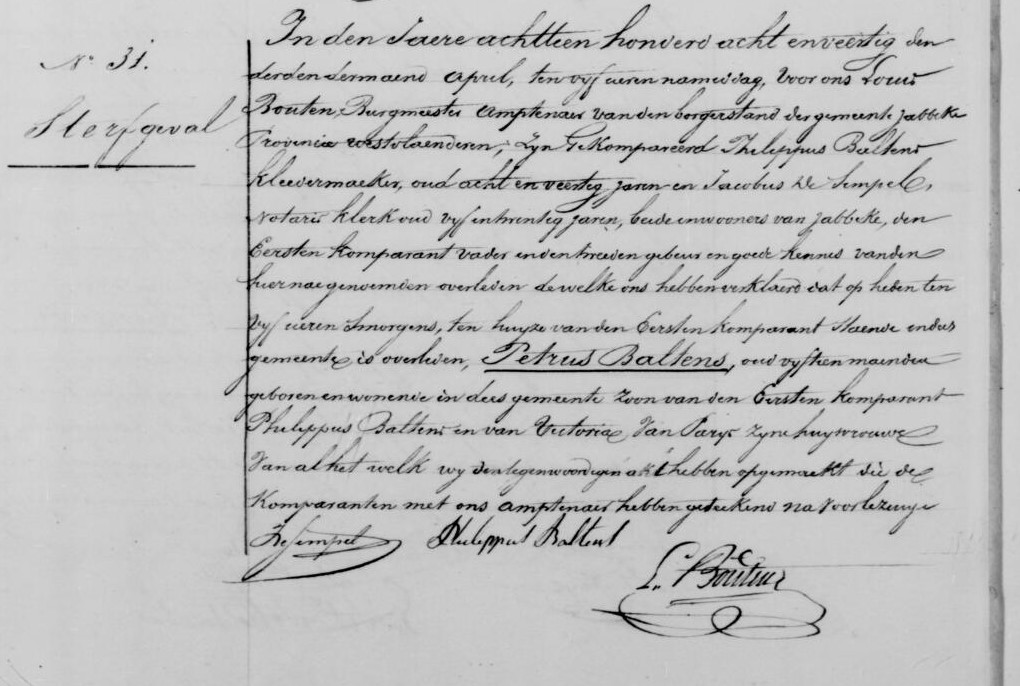 N° 31.
Sterfgeval
In den Jaere achttien honderd acht en veertig den
derden dermaend April, ten vyf ueren namiddag, voor ons Louis
Bouten, Burgmeester Amptenaer van den borgerstand der gemeente Jabbeke
Provincie westvlaenderen, Zyn Gekompareerd Philippus Baltens
kleedermaeker, oud acht en veertig jaren en Jacobus De Simpel,
Notaris klerk oud vyf en twintig jaren, beide inwooners van Jabbeke, den
Eersten komparant vader en den tweeden gebeur en goede kennis van den
hiernaegenoemden overleden dewelke ons hebben verklaerd dat op heden ten
vyf ueren smorgens, ten huyze van den Eersten komparant staende in dees
gemeente is overleden, Petrus Baltens, oud vyftien maenden
geboren en wonende in dees gemeente Zoon van den Eersten komparant
Philippus Baltens en van Victoria Van Parys Zyne huysvrouwe
Van al het welk wy den tegenwoordigen akt hebben opgemaekt die de
komparanten met ons amptenaer hebben geteekend na voorlezinge
DeSimpel Philippus Baltens
L. Bouten